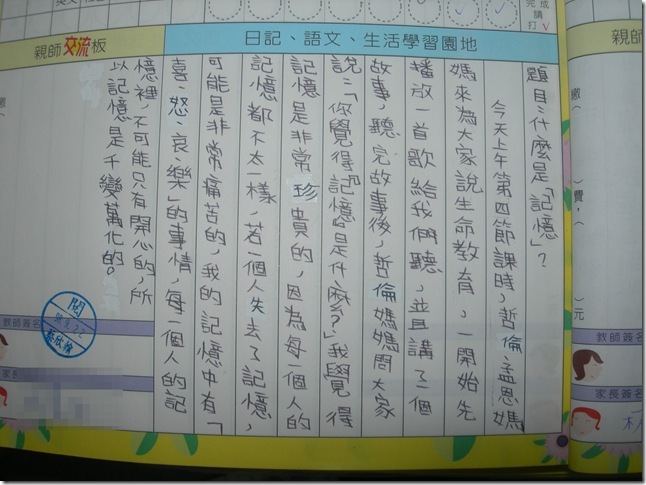 完成
請
打√
日記、語文、生活學習園地
親師交流板
題目:什麼是「記憶」?
今天上午第四節課時,哲倫、孟恩媽
媽來為大家說生命教育,一開始先
播放一首歌給我們聽,並且講了一個
故事,聽完故事後,哲倫媽媽問大家
說:「你覺得『記憶』是什麼?」我覺得
記憶是非常珍貴的,因為每一個人的
記憶都不太一樣,若一個人失去了記憶,
可能是非常痛苦的,我的記憶中有「
喜、怒、哀、樂」的事情,每一個人的記
憶裡,不可能只有開心的,所
以記憶是千變萬化的。
閱
教師簽名
親師
繳( )費,( )元
教師簽名
家長簽名